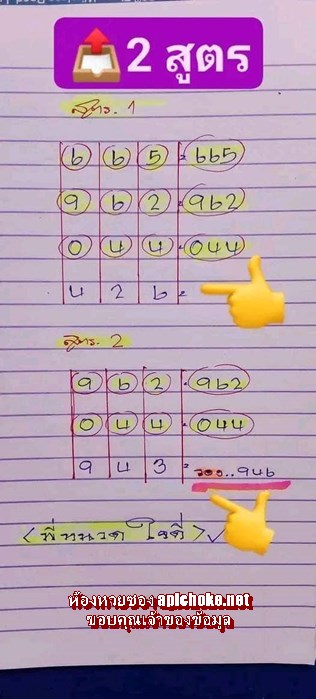 2 สูตร
สูตร. 1
6 6 5 = 665
9 6 2 = 962
0 4 4 = 044
4 2 6 =
สูตร. 2
9 6 2 = 962
0 4 4 = 044
9 4 3 = รอง..946
<พี่หนวด ใจดี>✓
ห้องหวยซอง apichoke.net
ขอบคุณเจ้าของข้อมูล